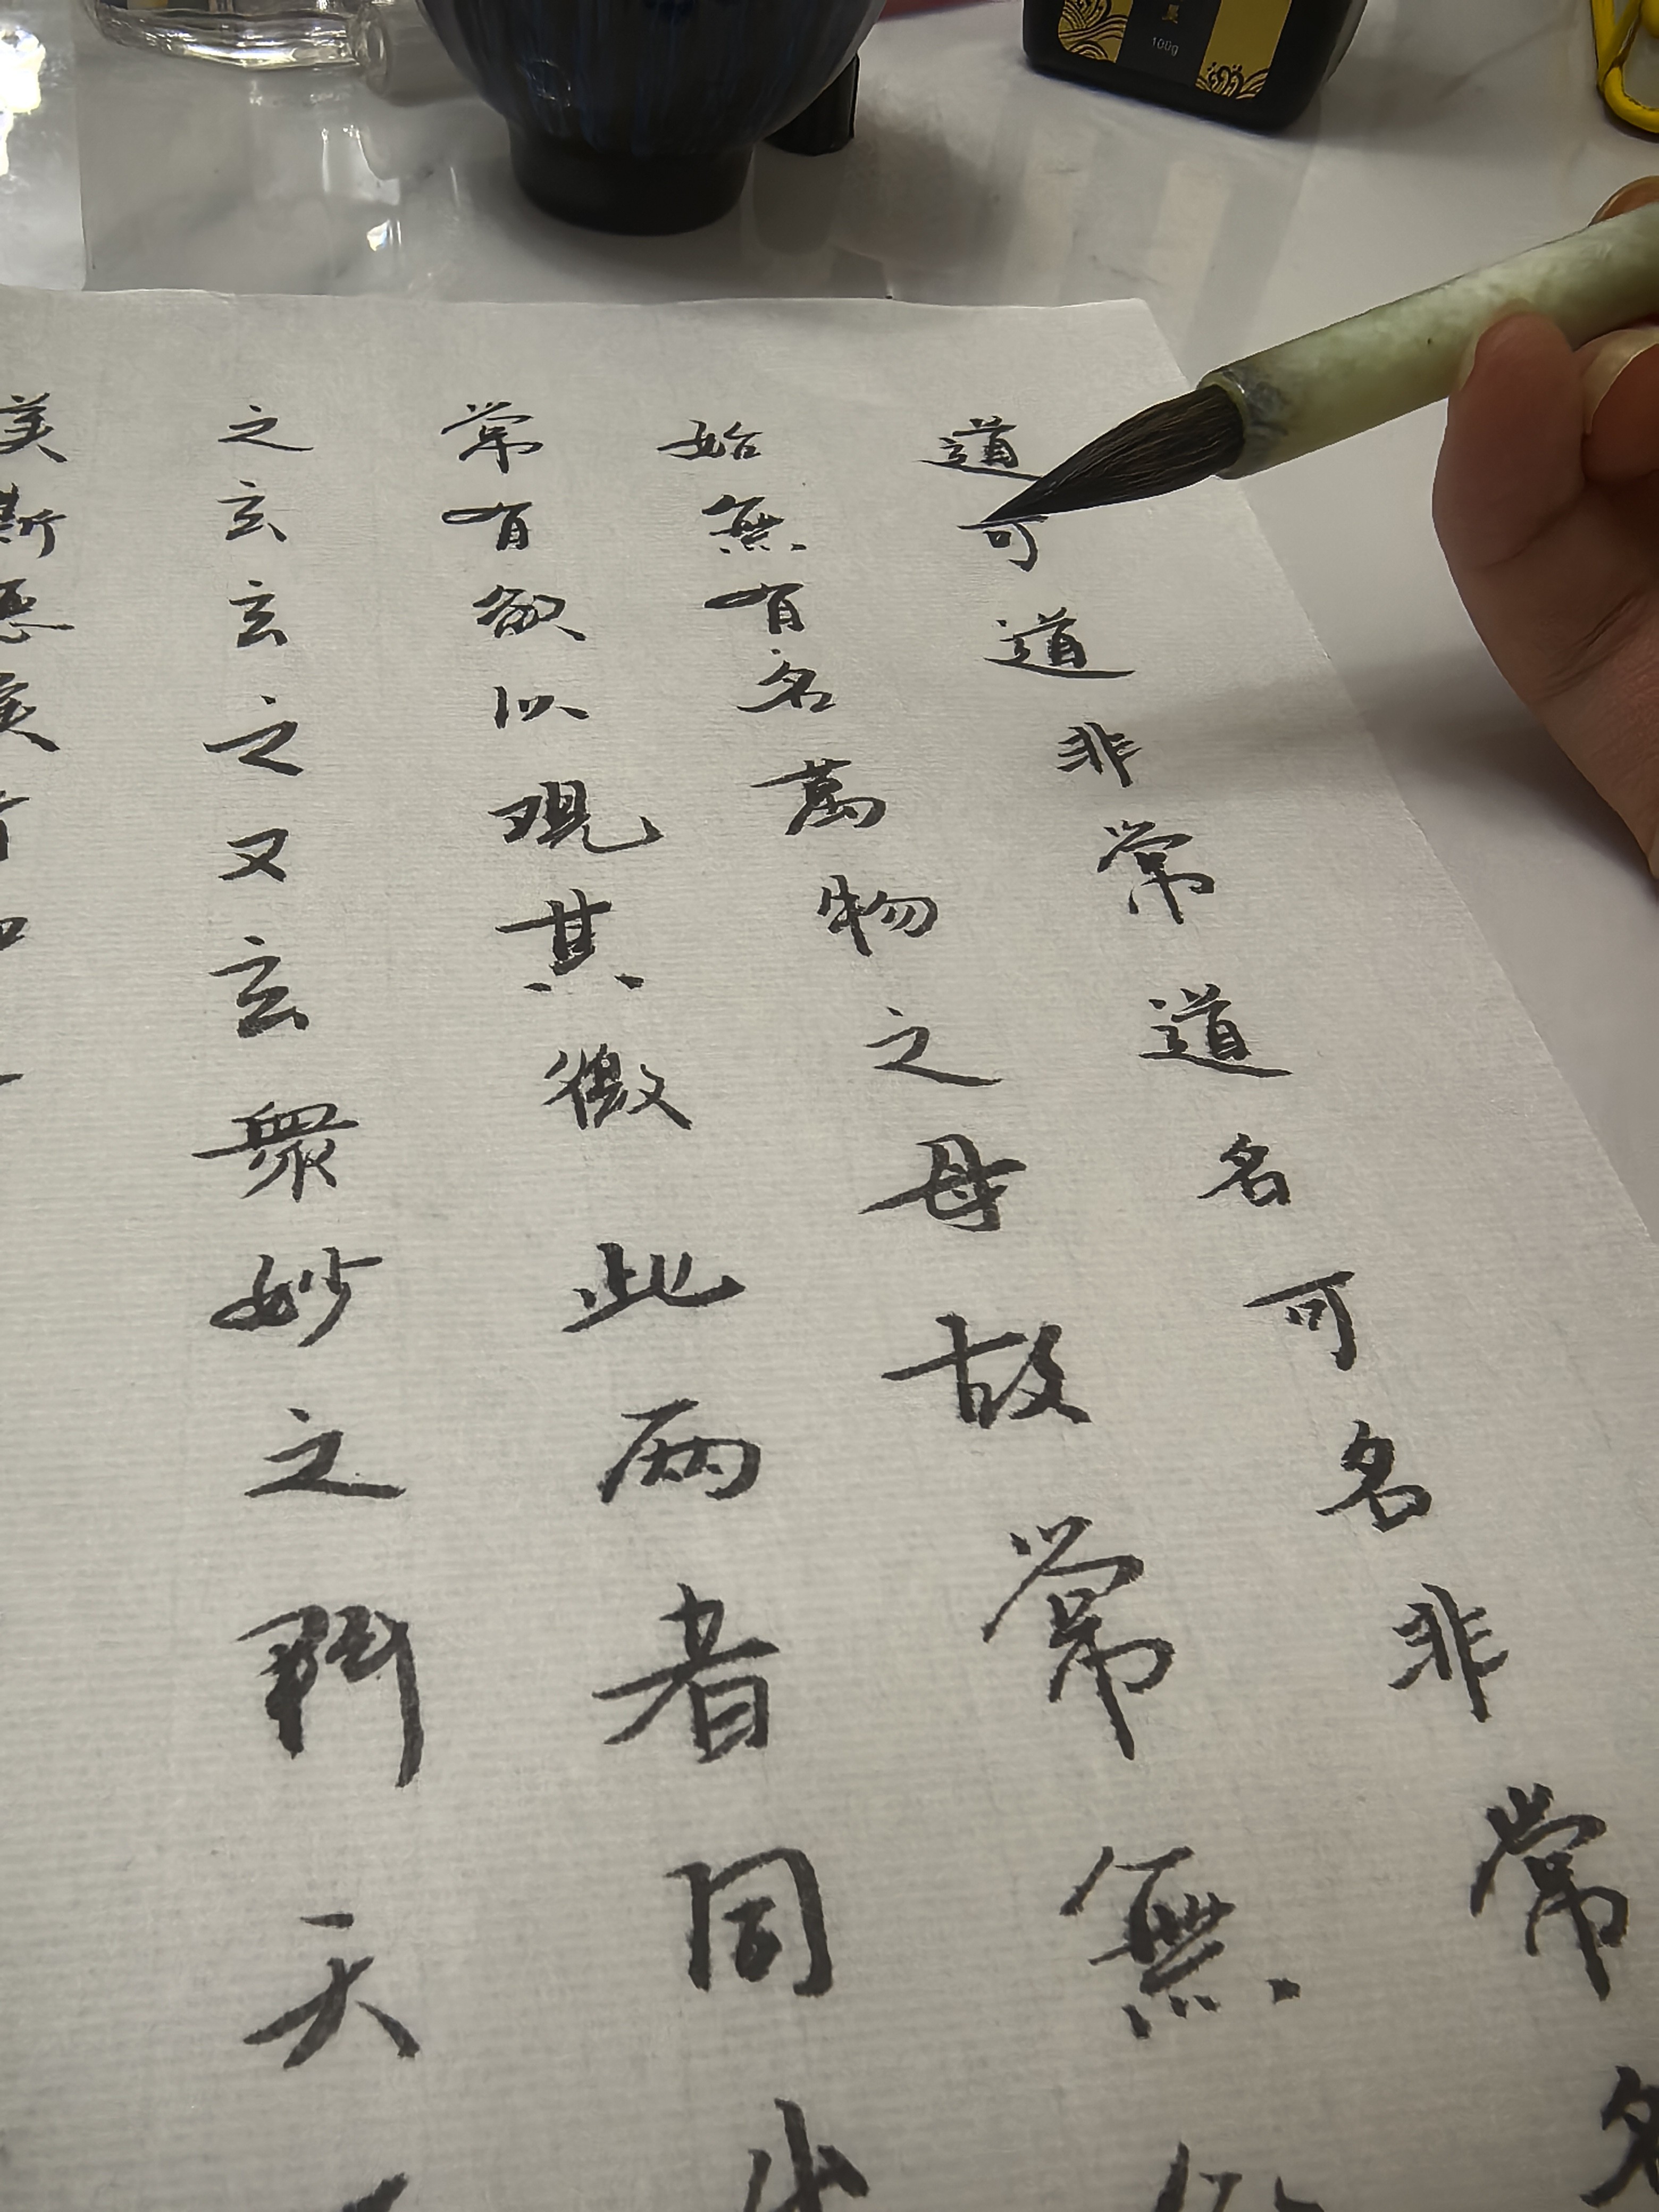 道可道非常道名可名非常名
始無有名萬物之母故常無
常有欲以观其徼此两者同出
之玄玄之又玄衆妙之門天
美斯惡矣
100g